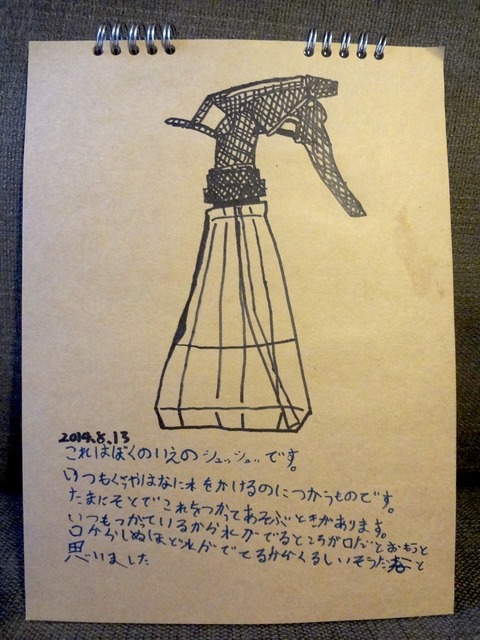 2014.8.13
これはぼくのいえのシュッシュッです。
いつもくさやはなに水をかけるのにつかうものです。
たまにそとでこれをつかってあそぶときがあります。
いつもつかているから水がでるところが口だとおもうと
口からしぬほど水がでてるからくるしいそうだ と
思いました